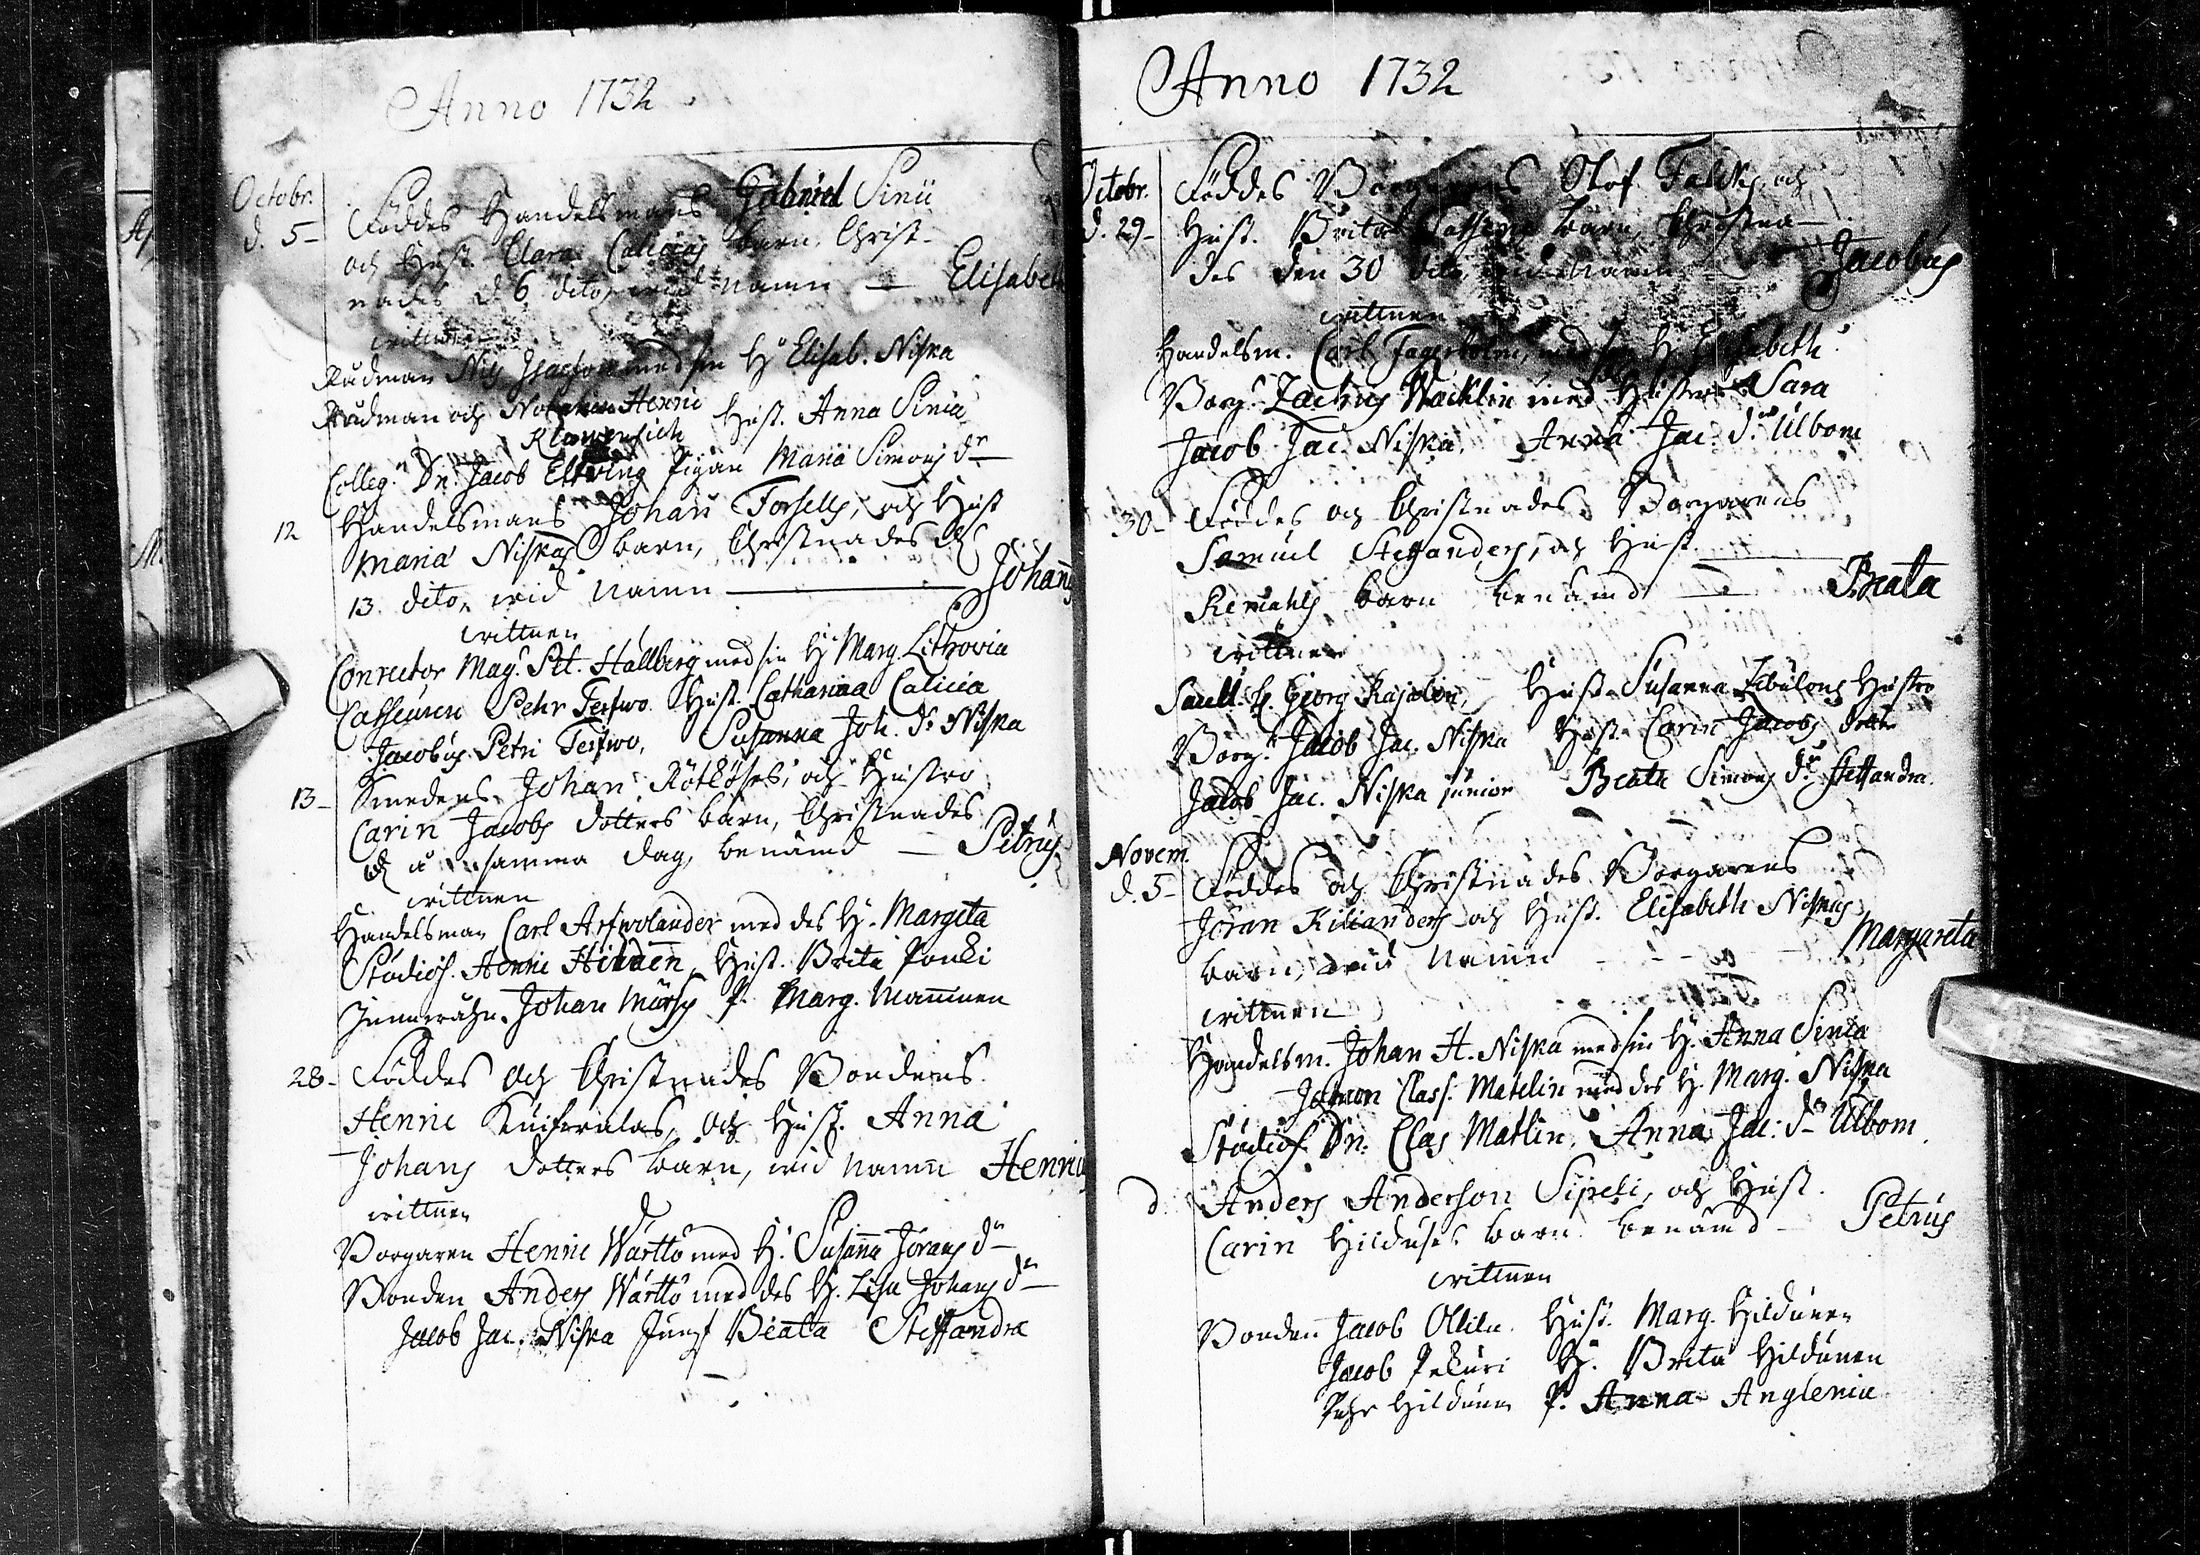 Anno 1732
Octobr. d. 5 - Föddes Handelsmans Gabriel Sinii
och Hust. Clara Caliciæ barn, Christ-
nades d. 6 dito, wid namn — Elisabeth
wittnen
Rådman Nils Isacson med sin H. Elisab. Niska
Rådman och Notarien Henric Hust. Anna Sinia
Collega Dn. Jacob Pigan Maria Simons dr
12 Handelsmans Johan Forsells, och Hust
Maria Niskas barn, Christnades d.
13. dito, wid namn — Johannes
wittnen
Conrector Mag. Pet. Hallberg med sin H. Marg. Lithovia
Casseuren Pehr Terfwo Hust. Catharina Calicia
Jacobus Petri Terfwo, Susanna Joh. dr Niska
13 - Smedens Johan och Hustro
Carin Jacobs dotters barn, Christnades
å samma dag, benämd — Petrus
wittnen
Handelsman Carl Arfwolander med des H. Margeta
Studios. Henric Hust. Brita Ponki
Johan P. Marg. Mammen
28 - Föddes och Christnades Bondens
Henric och Hust. Anna
Johans dotters barn, wid namn Henric
wittnen
Borgaren Henric Wärttö med H. Susanna Jörans dr
Bonden Anders Wärttö med des H. Lisa Johans dr
Jacob Jac. Niska Jungf Beata Steffandra
Anno 1732
Octobr. d. 29 - Föddes Borgarens Olof Falcks, och
Hust. Brita barn, Christna-
des den 30 dito, wid namn Jacobus
wittnen
Handelsm. Carl Fagerholm, med sin H. Elisabeth
Borg. Zachris Wacklin med Hustro Sara
Jacob Jac. Niska. Anna Jac. dr Ulbom
30 - Föddes och Christnades Borgarens
Samuel Steffanders, och Hust.
barn benämd — Beata
wittnen
Georg Kajalen, Hust. Susanna Hustro
Borg. Jacob Jac. Niska Hust. Carin Jacobs dotter
Jacob Jac. Niska junior Beata Simons dr Steffandra
Novem. d. 5 - Föddes och Christnades Borgarens
Jöran Kilianders och Hust. Elisabeth Niskas
barn, wid namn - - - Margareta
wittnen
Handelsm. Johan H. Niska med sin H. Anna Sinia
Class. Matelin med des H. Marg. Niska
Studios. Dn. Clas Matlin, Anna Jac. dr Ulbom
d Anders Anderson Sipeli, och Hust.
Carin barn benämd — Petrus
wittnen
Bonden Jacob Ollila Hust. Marg. Hildunen
Jacob Pekuri H. Brita Hildunen
Pehr Hildunen P. Anna Anglenia